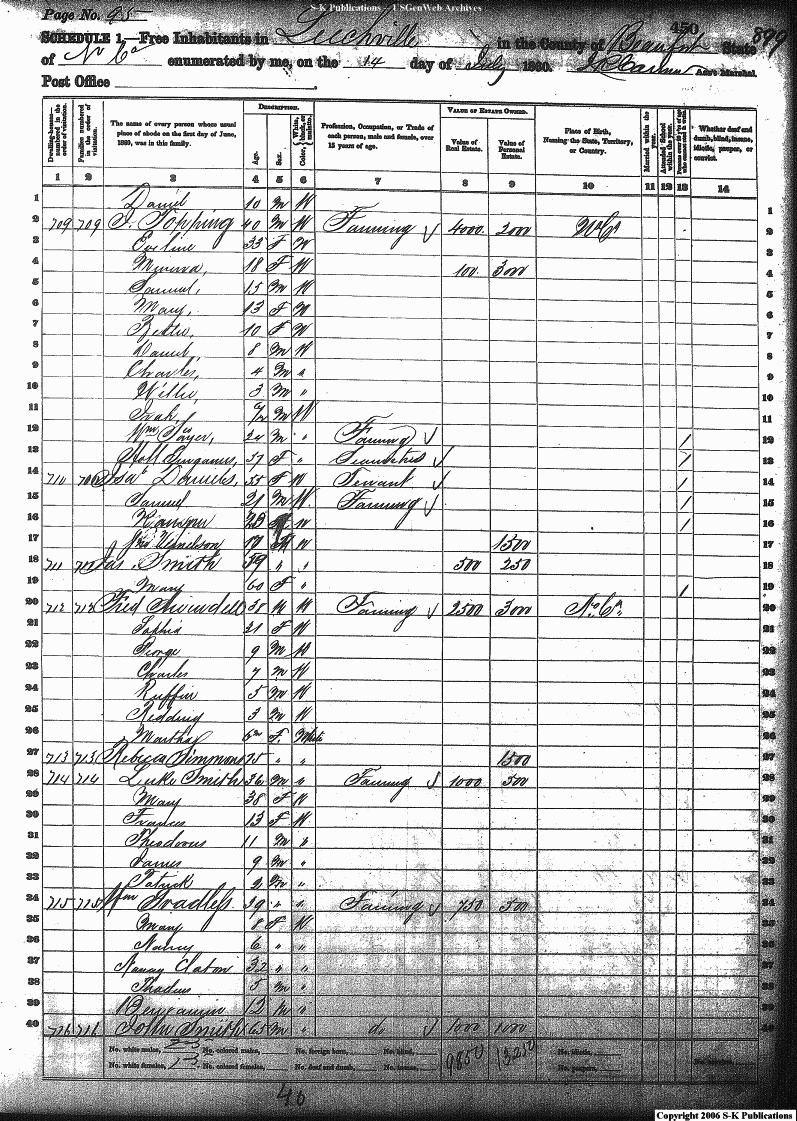 S-K Publications – USGenWeb Archives
Page No. 95
450
899
SCHEDULE 1.—Free Inhabitants in Leechville in the County of Beaufort State
of No Ca enumerated by me, on the 14 day of July 1860. Ass't Marshal.
Post Office
Dwelling-houses—numbered in the order of visitation.
Families numbered in the order of visitation.
The name of every person whose usual place of abode on the first day of June, 1860, was in this family.
Description.
Age.
Sex.
Color, White, black, or mulatto.
Profession, Occupation, or Trade of each person, male and female, over 15 years of age.
Value of Estate Owned.
Value of Real Estate.
Value of Personal Estate.
Place of Birth, Naming the State, Territory, or Country.
Married within the year.
Attended School within the year.
Whether deaf and dumb, blind, insane, idiotic, pauper, or convict.
1 2 3 4 5 6 7 8 9 10 11 12 13 14
1 Daniel 10 M W 1
2 709 709 S. Topping 40 M W Farming 4000 2000 No Ca 2
3 Eveline 33 F W 3
4 Minerva, 18 F W 100 3000 4
5 Samuel, 15 M W 5
6 Mary, 13 F W 6
7 10 F W 7
8 Daniel, 8 M W 8
9 Charles, 4 M " 9
10 Willie, 3 M " 10
11 M W 11
12 Wm 24 M " Farming / 12
13 37 F " / 13
14 710 Daniels, 55 F W Servant / 14
15 Samuel 21 M W Farming / 15
16 23 W / 16
17 17 W 1500 17
18 711 Jas. Smith 59 " " 500 250 18
19 Mary 60 F " / 19
20 712 712 Fred Swindell 38 M W Farming 2500 3000 No Ca. 20
21 Sophia 31 F W 21
22 George 9 M W 22
23 Charles 7 M W 23
24 Ruffin 5 M W 24
25 Redding 3 M W 25
26 Martha F. White 26
27 713 713 Rebecca Simmons 75 " " 1500 27
28 714 714 Luke Smith 36 M " Farming 1000 500 28
29 Mary 38 F W 29
30 Frances 13 F W 30
31 Theodorus 11 M " 31
32 James 9 M " 32
33 Patrick 2 M " 33
34 715 715 Wm 39 " " Farming 750 500 34
35 Mary 8 F W 35
36 Nancy 6 " " 36
37 Nancy 32 " " 37
38 Thadeus 5 M " 38
39 Benjamin 12 M " 39
40 716 716 John Smith 65 M " do 1000 1000 40
No. white males, 25 No. colored males, No. foreign born, No. blind, 9850 13250 No. idiotic,
No. white females, No. colored females, No. deaf and dumb, No. insane, No. paupers,
40
Copyright 2006 S-K Publications